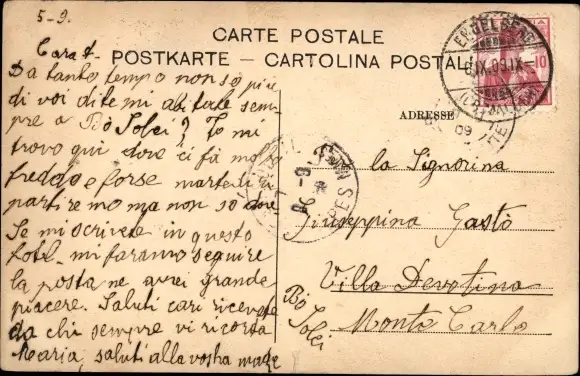 5-9.
CARTE POSTALE
POSTKARTE - CARTOLINA POSTALE
ADRESSE
Cara
Da tanto tempo non so più
di voi ditemi abitate sem
pre a Bò Solei? Io mi
trovo qui dove ci fà molto
freddo e forse martedi
partiremo ma non so dove
Se mi scrivete in questo
hotel mi faranno seguire
la posta ne avrei grande
piacere. Saluti cari ricevete
da chi sempre vi ricorda
Maria, saluti alla vostra madre
la Signorina
Giuseppina Gastò
Villa Devotina
Bò
Solei
Monte Carlo
ENGELBERG
IX.09.IX
10
09